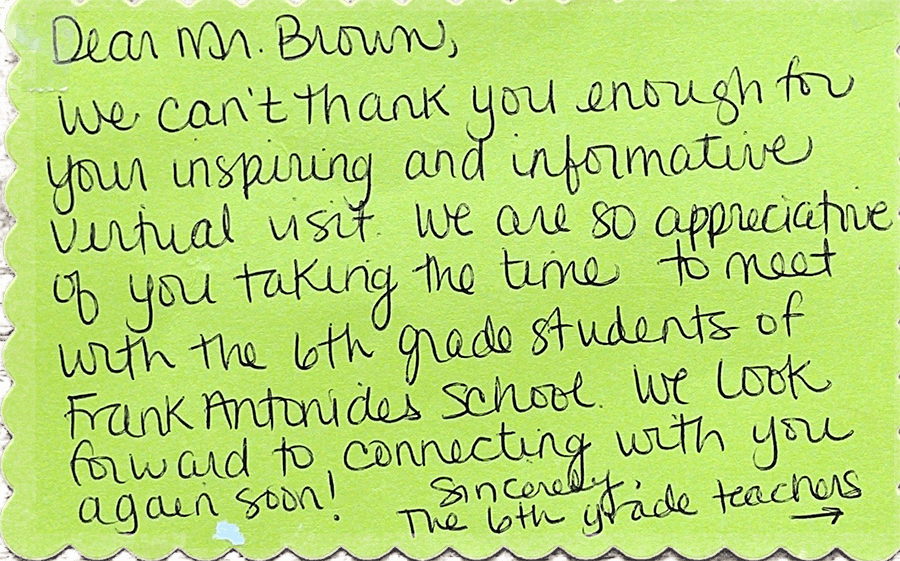 Dear Mr. Brown,
We can't thank you enough for
your inspiring and informative
virtual visit. We are so appreciative
of you taking the time to meet
with the 6th grade students of
Frank Antonides School. We look
forward to connecting with you
again soon! Sincerely,
The 6th grade teachers
→